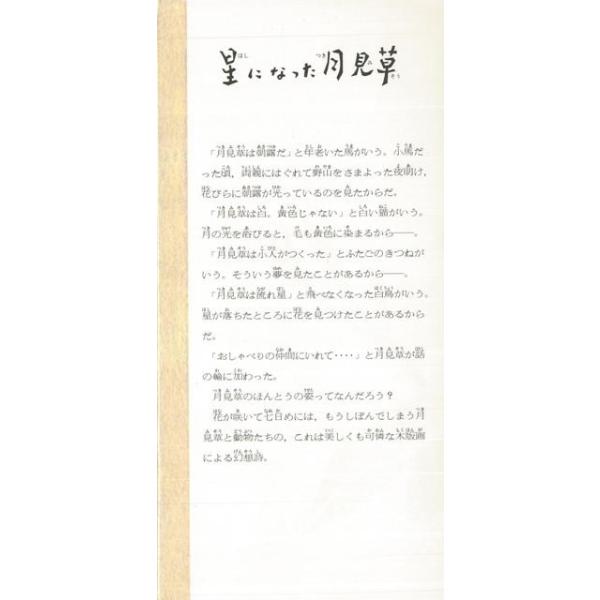 星になった月見草
「月見草は朝露だ」と年老いた馬がいう。小馬だ
った頃，両親にはぐれて野山をさまよった夜明け，
花びらに朝露が光っているのを見たからだ。
「月見草は白。黄色じゃない」と白い猫がいう。
月の光を浴びると，毛も黄色に染まるから――。
「月見草は小人がつくった」とふたごのきつねが
いう。そういう夢を見たことがあるから――。
「月見草は流れ星」と飛べなくなった白鳥がいう。
星が落ちたところに花を見つけたことがあるから
だ。
「おしゃべりの仲間にいれて‥‥」と月見草が話
の輪に加わった。
月見草のほんとうの姿ってなんだろう？
花が咲いて七日めには，もうしぼんでしまう月
見草と動物たちの，これは美しくも可憐な木版画
による幻想詩。